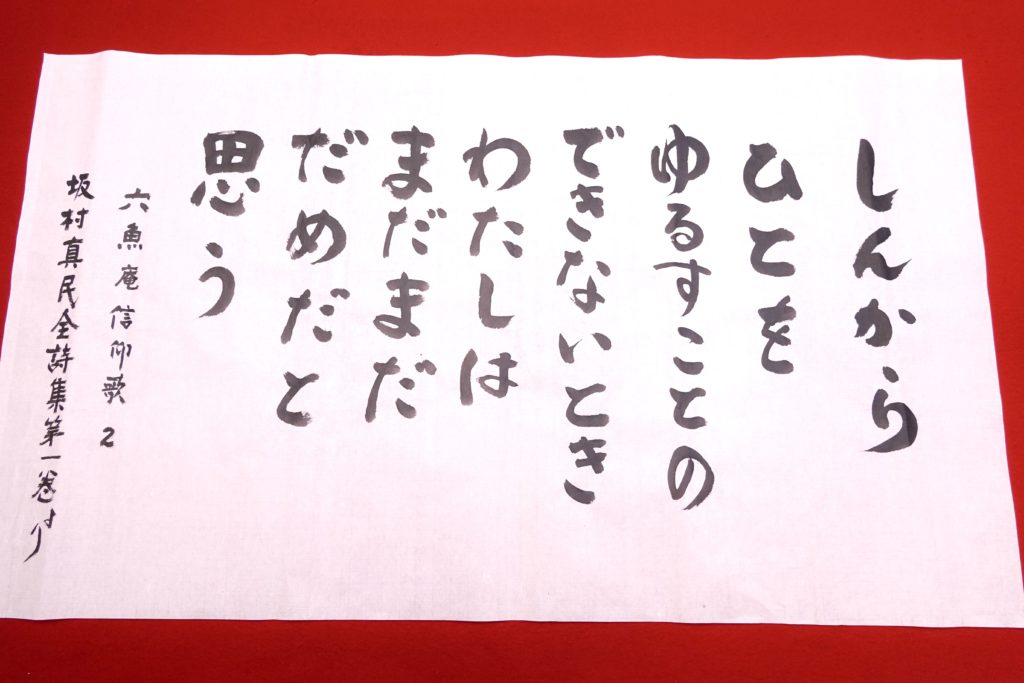 しんから
ひとを
ゆるすことの
できないとき
わたしは
まだまだ
だめだと
思う
六魚庵信仰歌 2
坂村真民全詩集第一巻より